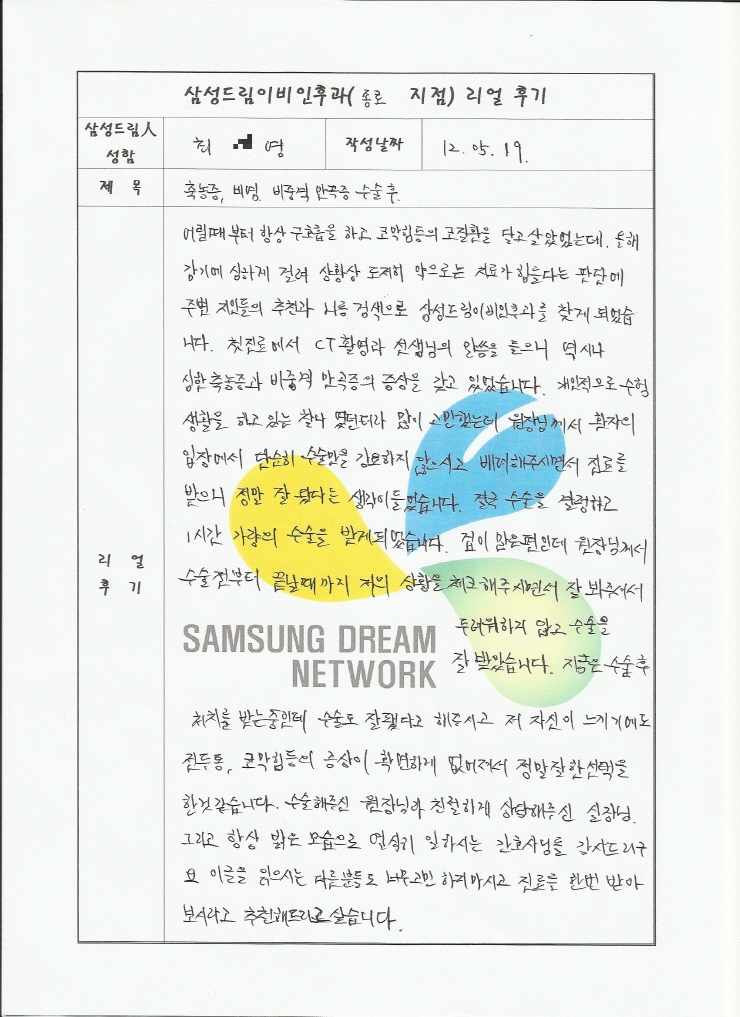 삼성드림이비인후과( 종로 지점) 리얼 후기
삼성드림人
성함
최 영
작성날짜
12. 05. 19.
제 목
축농증, 비염, 비중격 만곡증 수술 후.
리 얼
후 기
어릴때부터 항상 구호흡을 하고 코막힘등의 코질환을 달고 살았었는데. 올해
감기에 심하게 걸려 상황상 도저히 약으로는 치료가 힘들다는 판단에
주변 지인들의 추천과 나름 검색으로 삼성드림이비인후과를 찾게 되었습
니다. 첫진료에서 CT촬영과 선생님의 말씀을 들으니 역시나
심한 축농증과 비중격 만곡증의 증상을 갖고 있었습니다. 개인적으로 수험
생활을 하고 있는 찰나 였던터라 많이 고민했는데 원장님께서 환자의
입장에서 단순히 수술만을 강요하지 않으시고 배려해주시면서 진료를
받으니 정말 잘 왔다는 생각이들었습니다. 결국 수술을 결정하고
1시간 가량의 수술을 받게되었습니다. 겁이 많은편인데 원장님께서
수술전부터 끝날때까지 저의 상황을 체크해주시면서 잘 봐주셔서
SAMSUNG DREAM
NETWORK
두려워하지 않고 수술을
잘 받았습니다. 지금은 수술 후
처치를 받는중인데 수술도 잘됐다고 해주시고 저 자신이 느끼기에도
편두통, 코막힘등의 증상이 확연하게 없어져서 정말잘한선택을
한것같습니다. 수술해주신 원장님과 친절하게 상담해주신 실장님.
그리고 항상 밝은 모습으로 열심히 일하시는 간호사님들 감사드리구
요 이글을 읽으시는 다른분들도 너무고민 하지마시고 진료를 한번 받아
보시라고 추천해드리고 싶습니다.